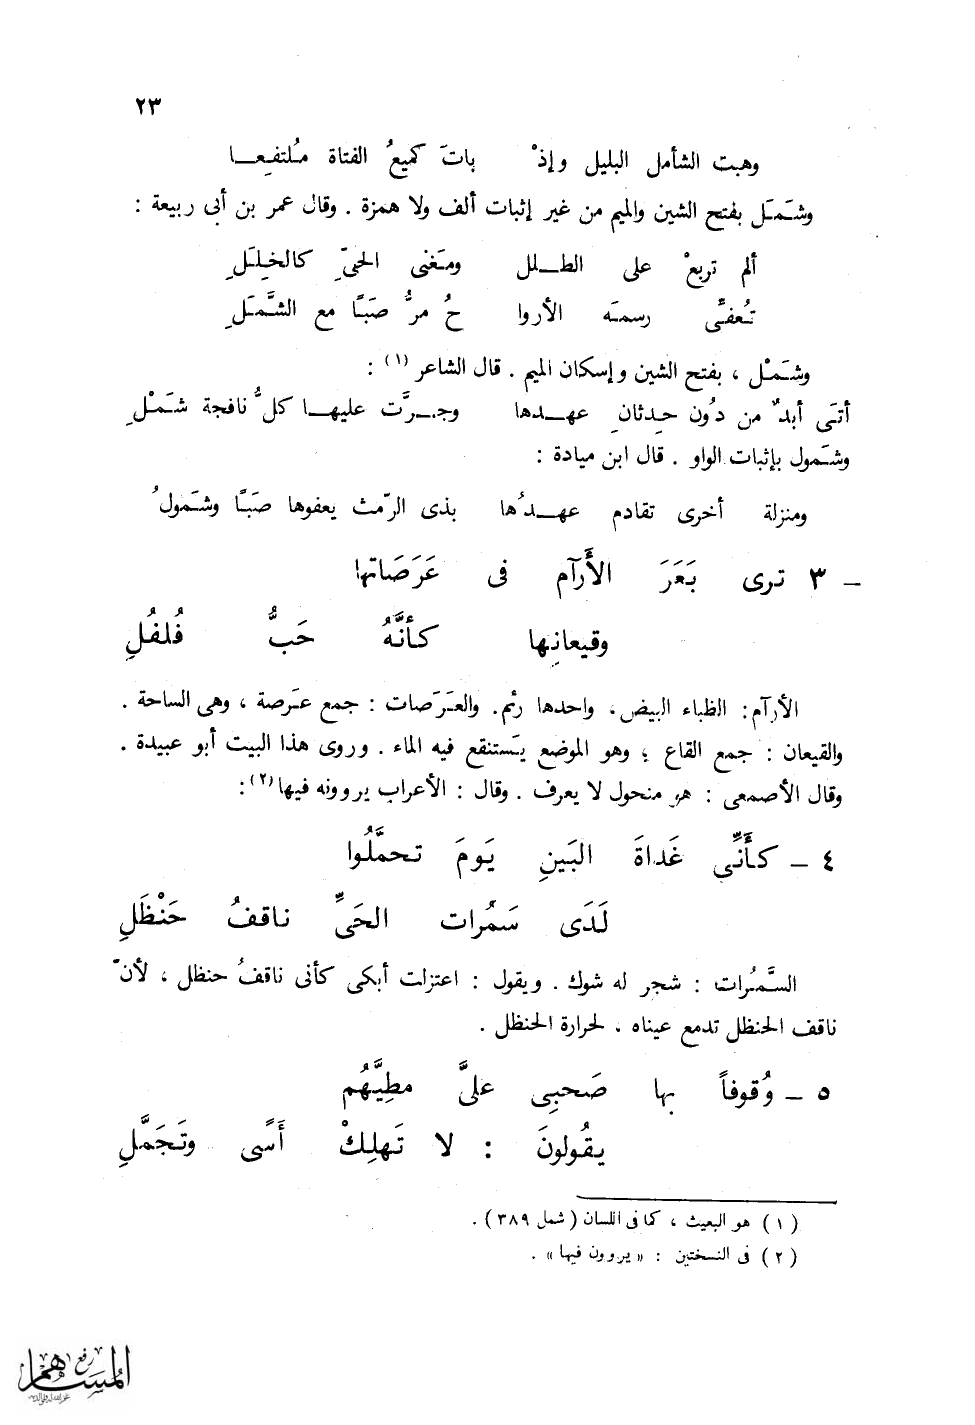 ٢٣
وهبت الشأمل البليل وإذْ باتَ كميعُ الفتاة مُلتفِعـا
وشَمَل بفتح الشين والميم من غير إثبات ألف ولا همزة . وقال عمر بن أبى ربيعة :
ألم تربعْ على الطـلل ومَغنى الحىِّ كالخِلَلِ
تُعفِّى رسمَه الأروا حُ مرُّ صَبًا مع الشَّمَلِ
وشَمْل ، بفتح الشين وإسكان الميم . قال الشاعر (١) :
أتَى أبدٌ من دُون حِدثانِ عهـدها وجـرَّت عليهـا كلُّ نافجة شَمْلِ
وشَمول بإثبات الواو . قال ابن ميادة :
ومنزلة أخرى تقادم عهـدُها بذى الرّمث يعفوها صَبًا وشَمولُ
٣ ـ ترى بَعَرَ الأَرآم فى عَرَصَاتها
وقيعانِها كأنَّهُ حَبُّ فُلفُلِ
الأرآم: الظباء البيض، واحدها رئم. والعَرَصات : جمع عَرصة ، وهى الساحة .
والقيعان : جمع القاع ؛ وهو الموضع يَستنقع فيه الماء . وروى هذا البيت أبو عبيدة .
وقال الأصمعى : هو منحول لا يعرف . وقال : الأعراب يروونه فيها(٢):
٤ ـ كأَنِّى غَداةَ البَينِ يَومَ تحمَّلُوا
لَدَى سَمُرات الحَىِّ ناقفُ حَنْظَلِ
السَّمُرات : شجر له شوك . ويقول : اعتزلت أبكى كأنى ناقفُ حنظل ، لأنّ
ناقف الحنظل تدمع عيناه ، لحرارة الحنظل .
٥ ـ وُقوفاً بها صَحبِى علىَّ مطِيَّهُم
يقُولونَ : لا تَهلِكْ أَسًى وتَجَمَّلِ
(١) هو البعيث ، كما فى اللسان (شمل ٣٨٩) .
(٢) فى النسختين : « يروون فيها» .
رفع
المساهم